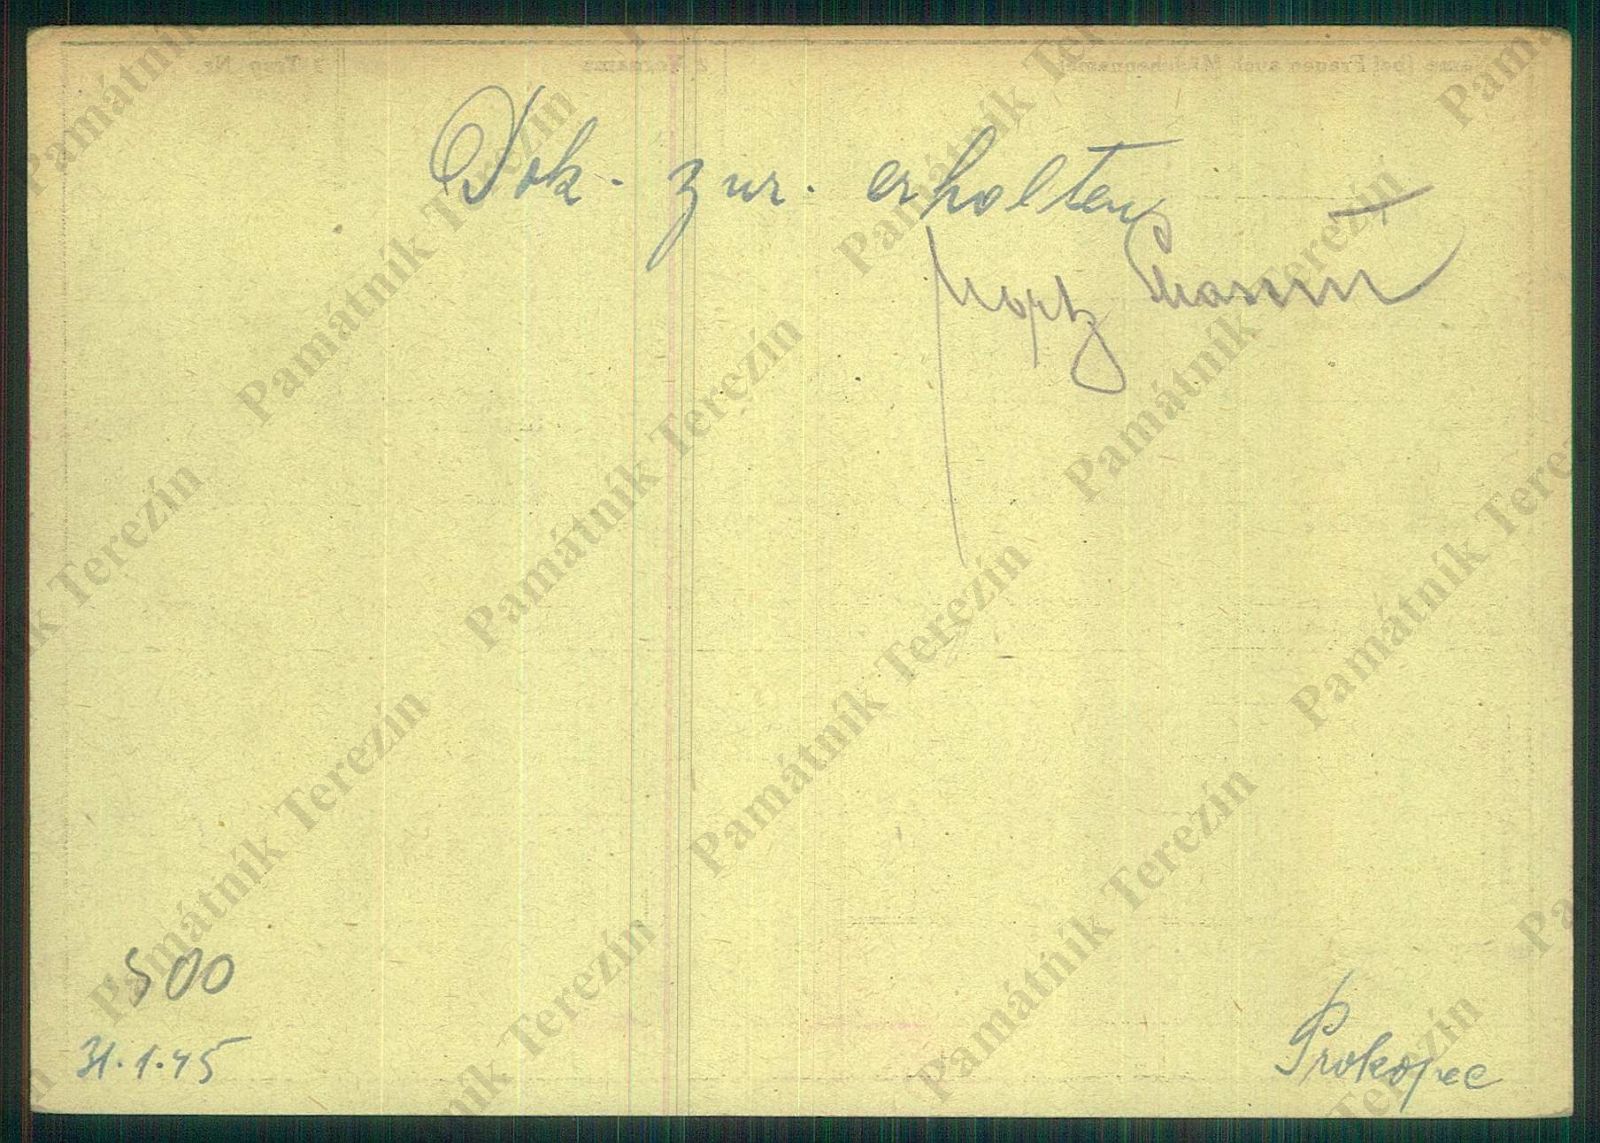 Dok. zur. erholten
500
31.1.45
Prokopec
Památník Terezín